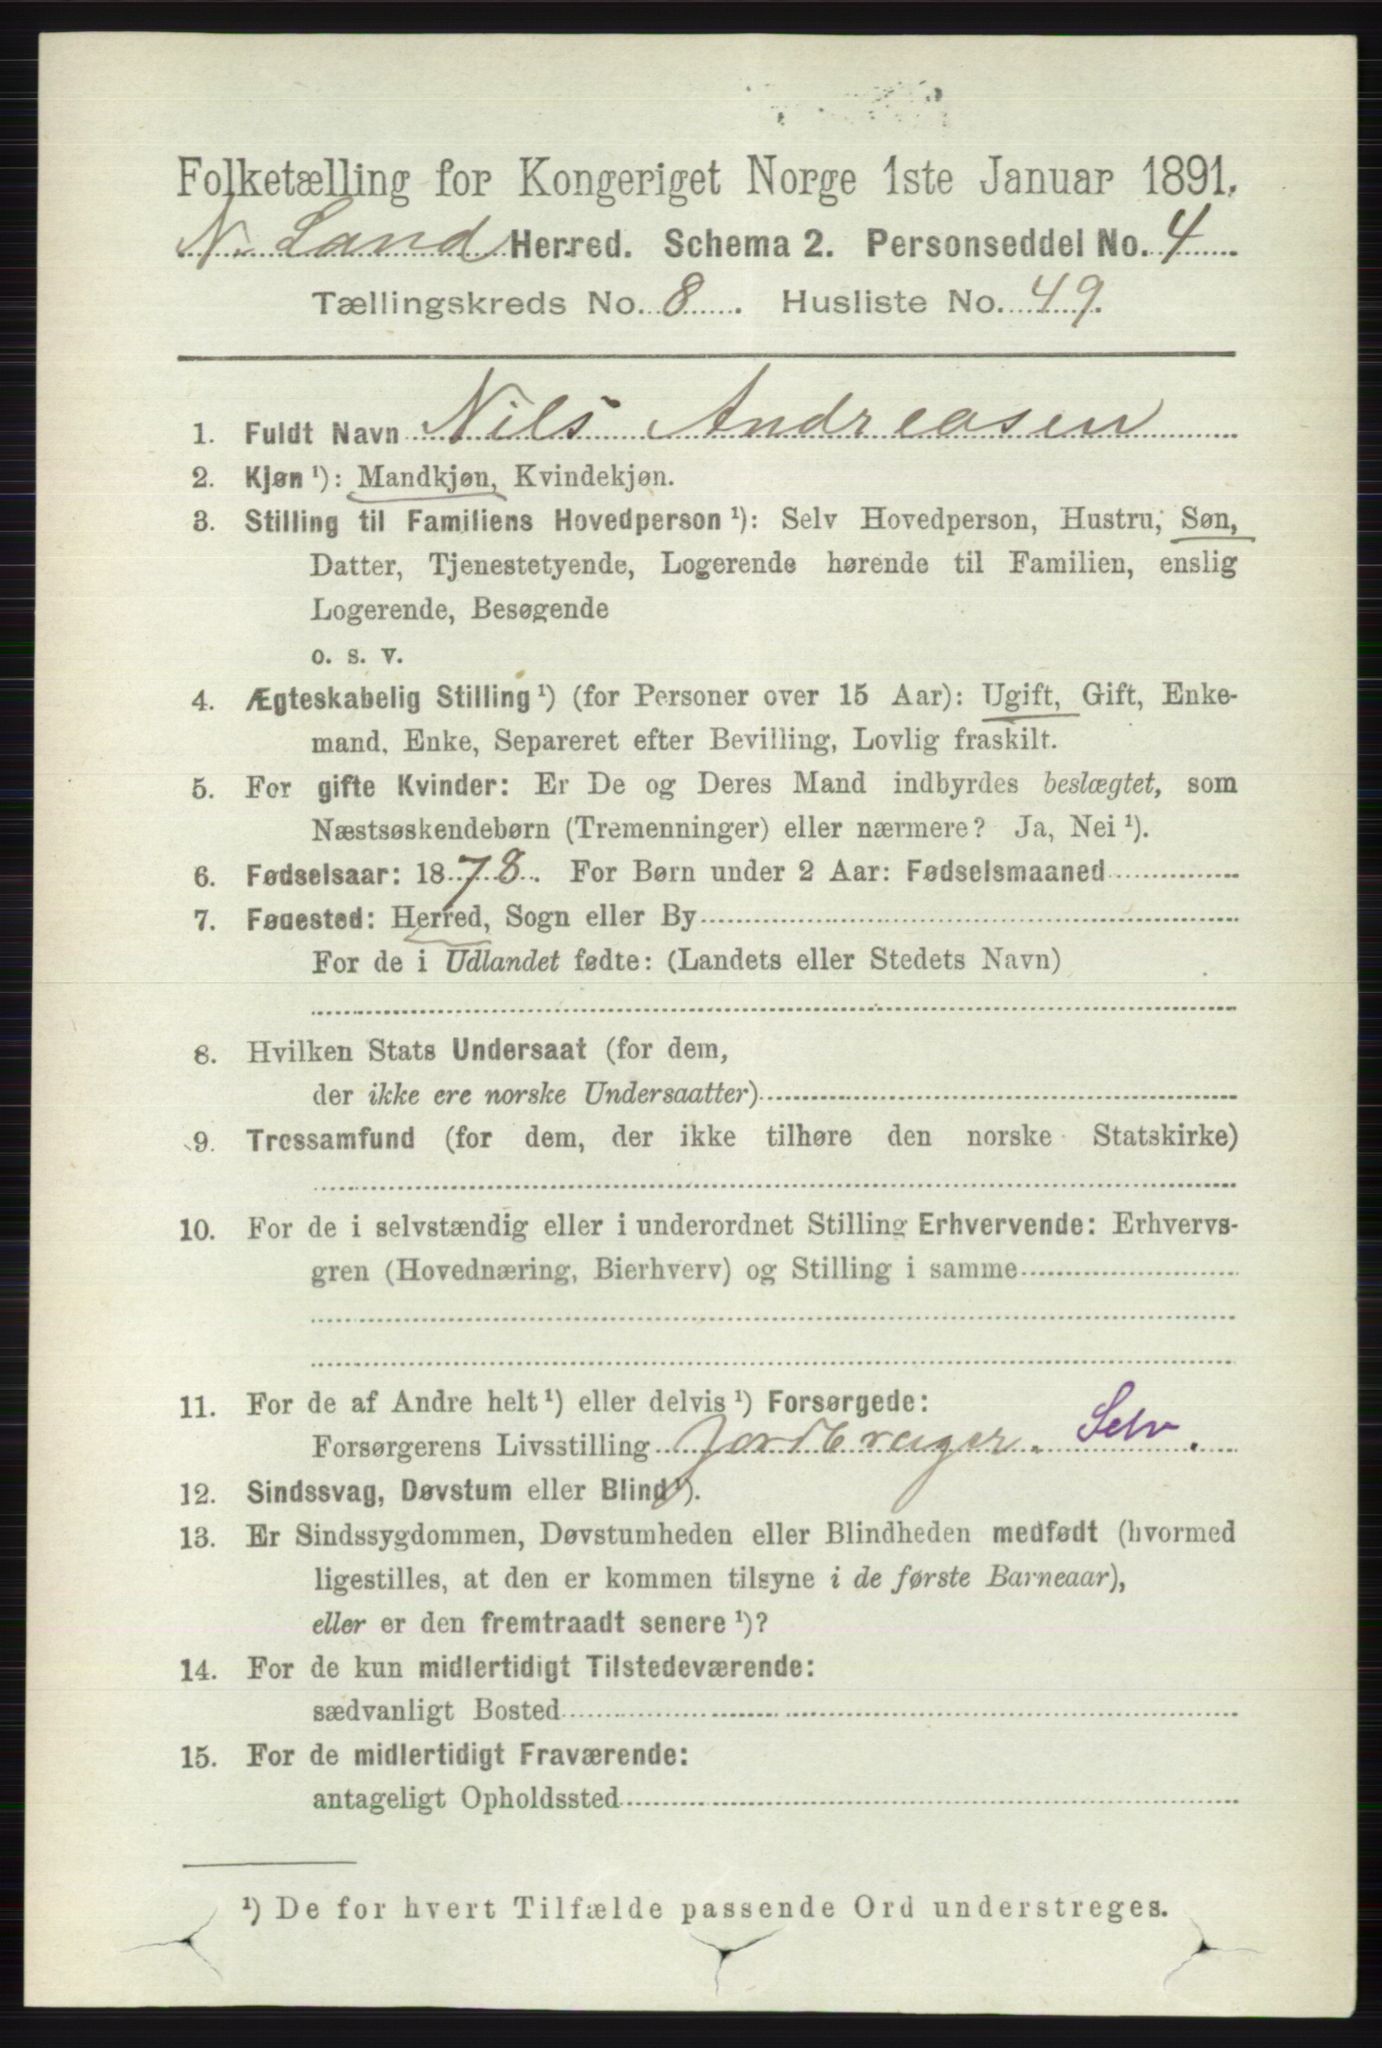 Folketælling for Kongeriget Norge 1ste Januar 1891.
N. Land Herred. Schema 2. Personseddel No. 4
Tællingskreds No. 8. Husliste No. 49.
1. Fuldt Navn Nils Andreasen
2. Kjøn ¹): Mandkjøn, Kvindekjøn.
3. Stilling til Familiens Hovedperson ¹): Selv Hovedperson, Hustru, Søn,
Datter, Tjenestetyende, Logerende hørende til Familien, enslig
Logerende, Besøgende
o. s. v.
4. Ægteskabelig Stilling ¹) (for Personer over 15 Aar): Ugift, Gift, Enke-
mand, Enke, Separeret efter Bevilling, Lovlig fraskilt.
5. For gifte Kvinder: Er De og Deres Mand indbyrdes beslægtet, som
Næstsøskendebørn (Tremenninger) eller nærmere? Ja, Nei ¹).
6. Fødselsaar: 1878. For Børn under 2 Aar: Fødselsmaaned
7. Fødested: Herred, Sogn eller By
For de i Udlandet fødte: (Landets eller Stedets Navn)
8. Hvilken Stats Undersaat (for dem,
der ikke ere norske Undersaatter)
9. Trossamfund (for dem, der ikke tilhøre den norske Statskirke)
10. For de i selvstændig eller i underordnet Stilling Erhvervende: Erhvervs-
gren (Hovednæring, Bierhverv) og Stilling i samme
11. For de af Andre helt ¹) eller delvis ¹) Forsørgede:
Forsørgerens Livsstilling Jordbruger. Selv.
12. Sindssvag, Døvstum eller Blind ¹).
13. Er Sindssygdommen, Døvstumheden eller Blindheden medfødt (hvormed
ligestilles, at den er kommen tilsyne i de første Barneaar),
eller er den fremtraadt senere ¹)?
14. For de kun midlertidigt Tilstedeværende:
sædvanligt Bosted
15. For de midlertidigt Fraværende:
antageligt Opholdssted
¹) De for hvert Tilfælde passende Ord understreges.